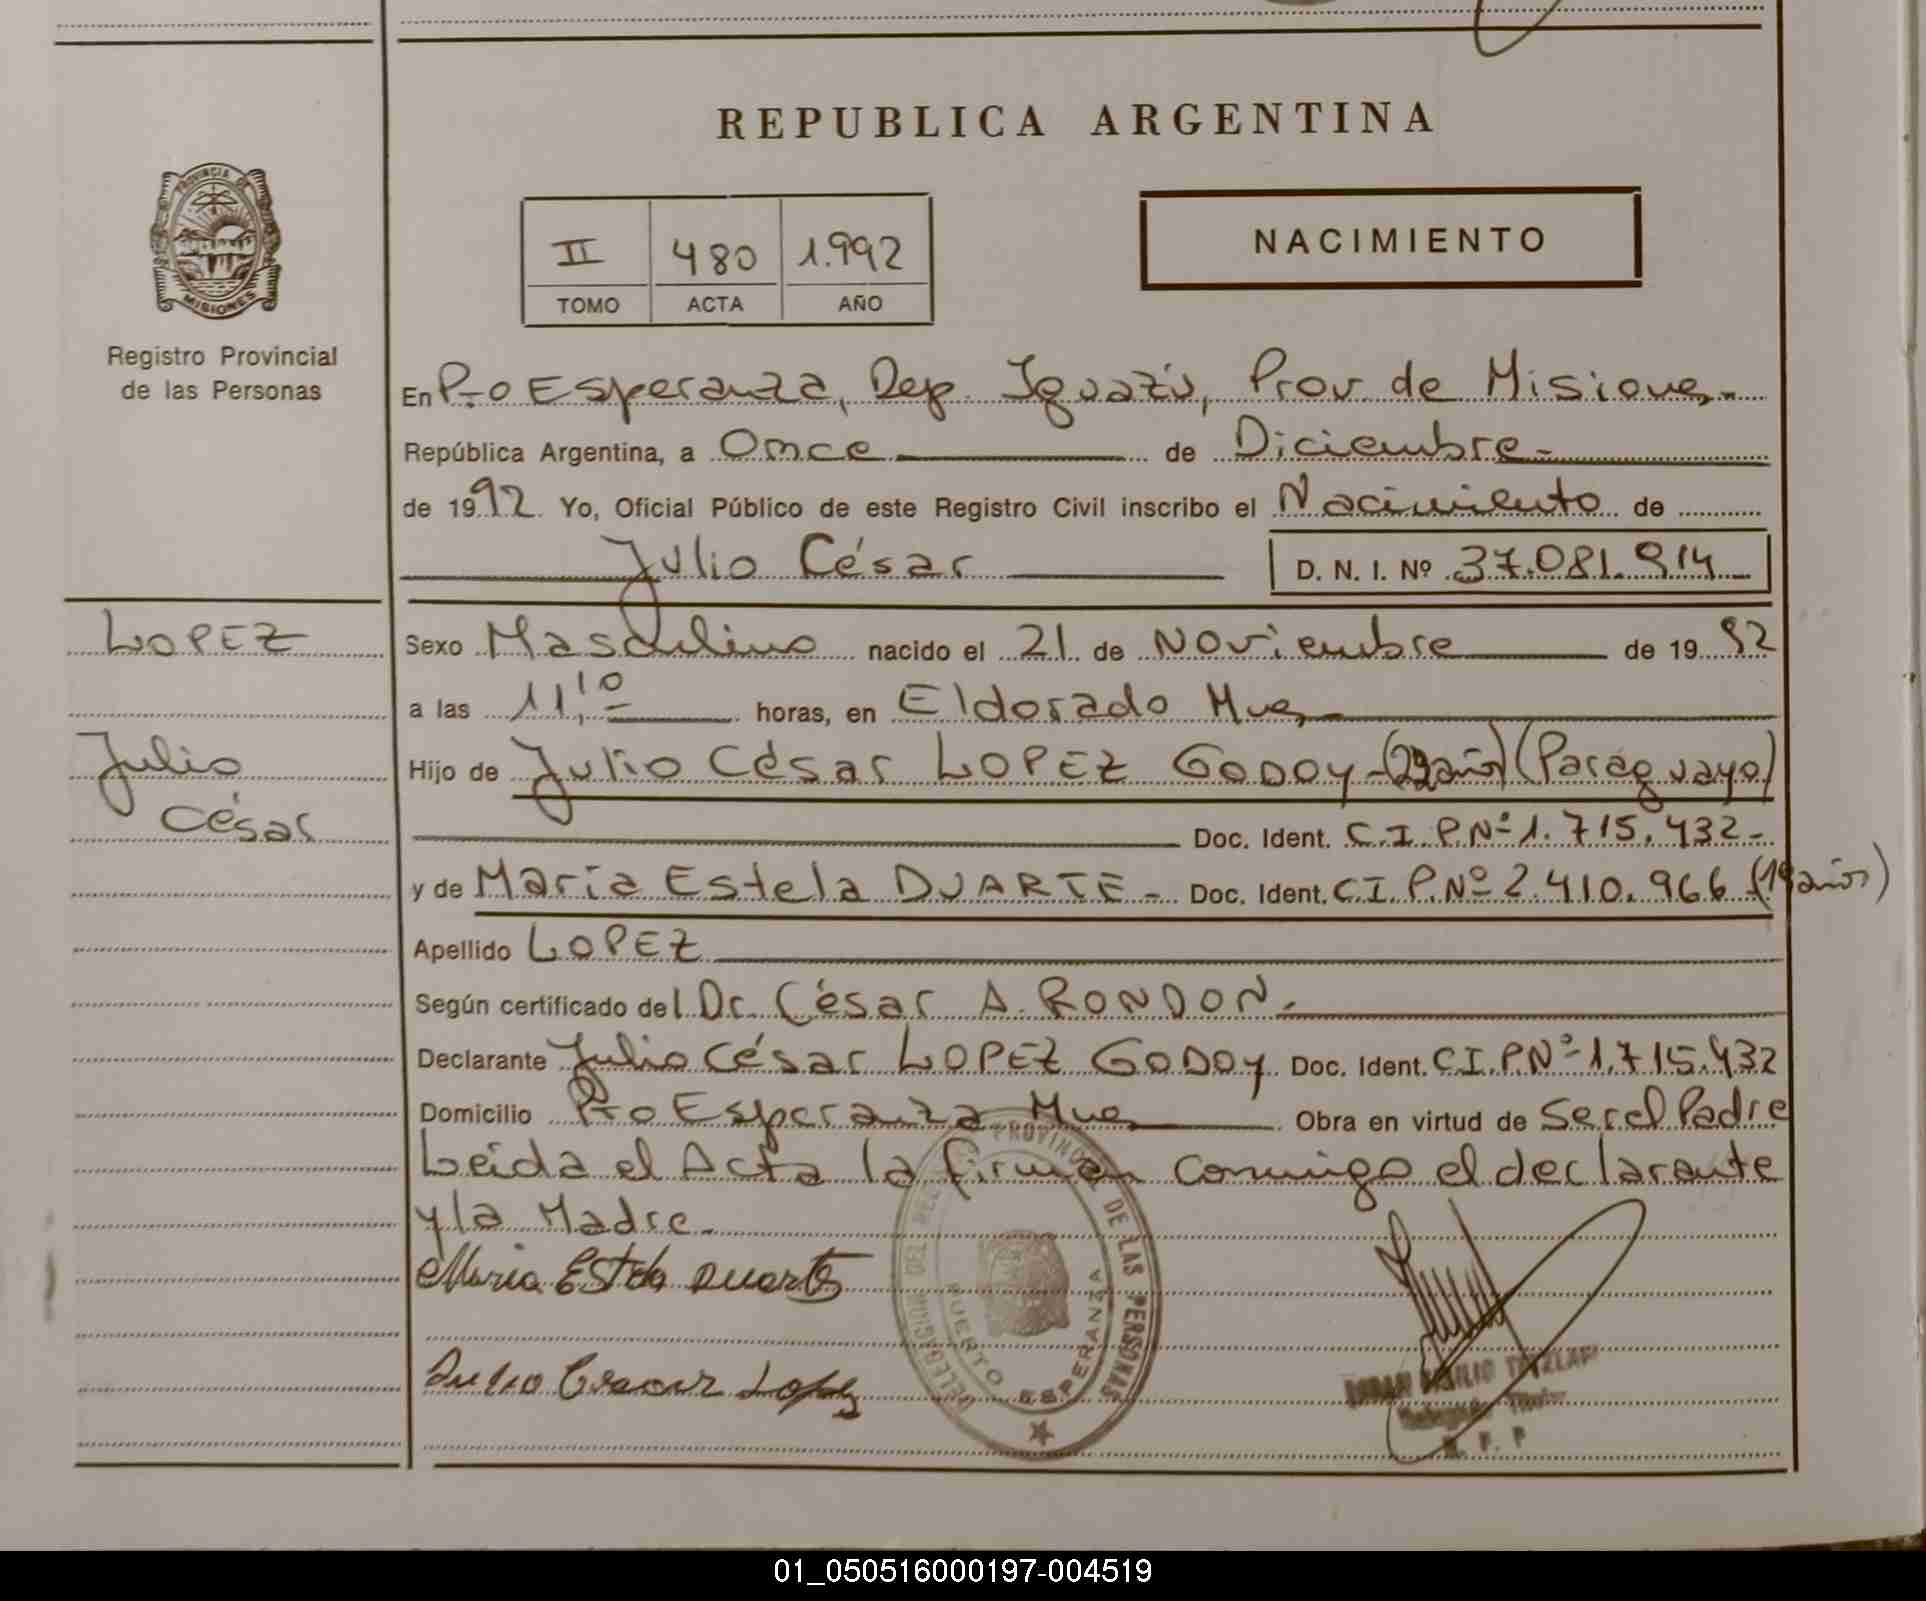 REPUBLICA ARGENTINA
PROVINCIA DE
MISIONES
Registro Provincial
de las Personas
II 480 1.992
TOMO ACTA AÑO
NACIMIENTO
En Pto Esperanza, Dep. Iguazú, Prov. de Misiones.-
República Argentina, a Once de Diciembre.-
de 1992 Yo, Oficial Público de este Registro Civil inscribo el Nacimiento de
Julio César D. N. I. Nº 37.081.914
LOPEZ
Julio
César
Sexo Masculino nacido el 21 de Noviembre de 1992
a las 11,10 horas, en Eldorado Mnes.-
Hijo de Julio César LOPEZ GODOY-(29 años) (Paraguayo)
Doc. Ident. C.I.P.Nº 1.715.432-
y de María Estela DUARTE.- Doc. Ident. C.I.P.Nº 2.410.966 (19 años)
Apellido LOPEZ
Según certificado del Dr. César A. RONDON.-
Declarante Julio César LOPEZ GODOY Doc. Ident. C.I.P.Nº 1.715.432
Domicilio Pto Esperanza Mnes Obra en virtud de Ser el Padre
Leida el Acta la firman conmigo el declarante
y la Madre.-
Maria Estela Duarte
Julio Cesar Lopez
PROVINCIAL DE LAS PERSONAS
PUERTO ESPERANZA
01_050516000197-004519